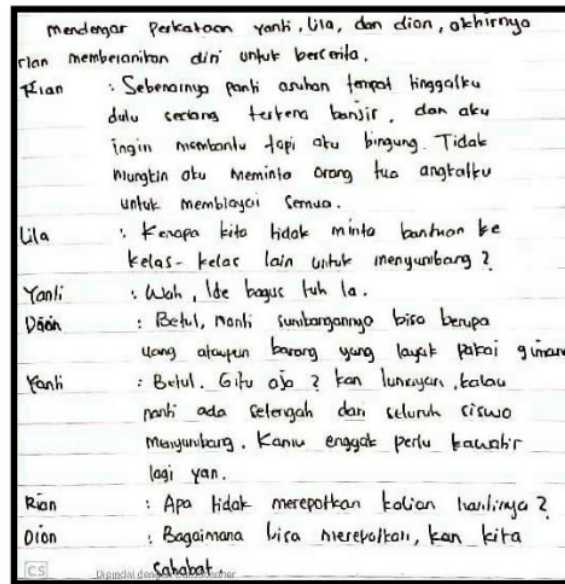 mendengar perkataan Yanti, Lila, dan dion, akhirnya
rian memberanikan diri untuk bercerita.
Rian : Sebenarnya panti asuhan tempat tinggalku
dulu sedang terkena banjir, dan aku
ingin membantu tapi aku bingung. Tidak
mungkin aku meminta orang tua angkatku
untuk membiayai semua.
Lila : Kenapa kita tidak minta bantuan ke
kelas-kelas lain untuk menyumbang?
Yanti : Wah, Ide bagus tuh la.
Dion : Betul, nanti sumbangannya bisa berupa
uang ataupun barang yang layak pakai giman
Yanti : Betul. Gitu aja? kan lumayan, kalau
nanti ada setengah dari seluruh siswa
menyumbang. Kamu enggak perlu kawatir
lagi yan.
Rian : Apa tidak merepotkan kalian nantinya?
Dion : Bagaimana bisa merepotkan, kan kita
sahabat.
CS Dipindai dengan